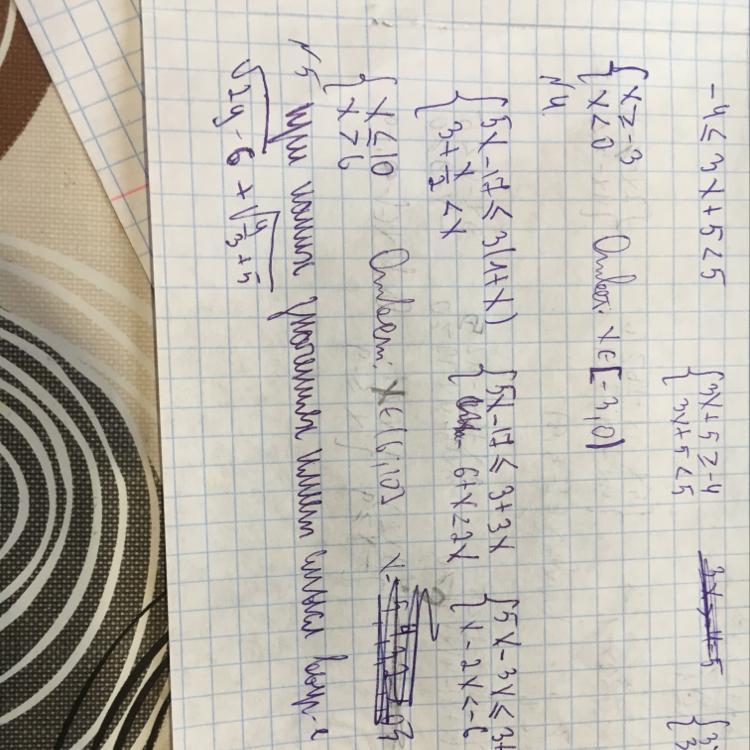 -4 ≤ 3x+5 < 5 { 3x+5 ≥ -4
3x+5 < 5
{ x ≥ -3
x < 0 Ответ: x ∈ [-3,0)
№4
{ 5x-17 ≤ 3(1+x) { 5x-17 ≤ 3+3x { 5x-3x ≤ 3+
3+x/2 < x 6+x < 2x x-2x < -6
{ x ≤ 10
x > 6 Ответ: x ∈ (6,10]
№5 При каких значениях имеет смысл
√2y-6 + √y/3+5